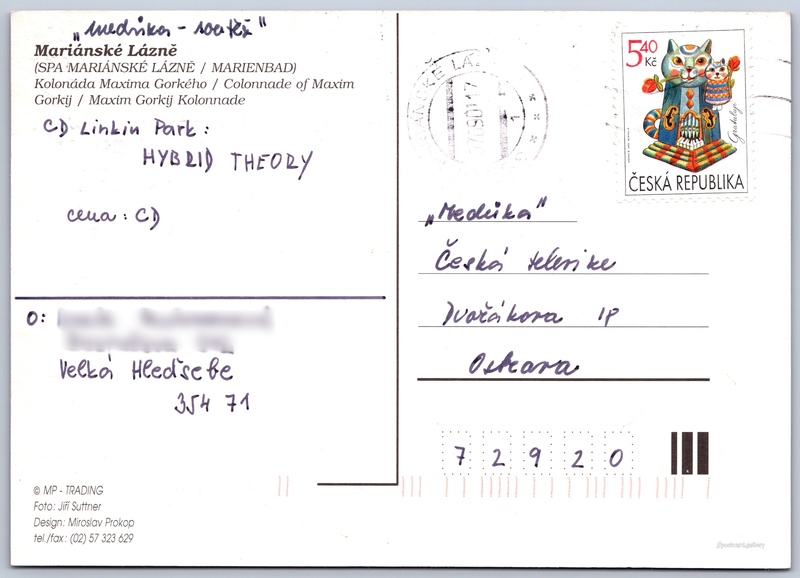 „Medůka - soutěž"
Mariánské Lázně
(SPA MARIÁNSKÉ LÁZNĚ / MARIENBAD)
Kolonáda Maxima Gorkého / Colonnade of Maxim
Gorkij / Maxim Gorkij Kolonnade
CD Linkin Park:
HYBRID THEORY
cena: CD
O:
Velká Hleďsebe
354 71
© MP - TRADING
Foto: Jiří Suttner
Design: Miroslav Prokop
tel./fax: (02) 57 323 629
5,40
Kč
ČESKÁ REPUBLIKA
„Medůka"
Česká televize
Dvořákova 18
Ostrava
72920